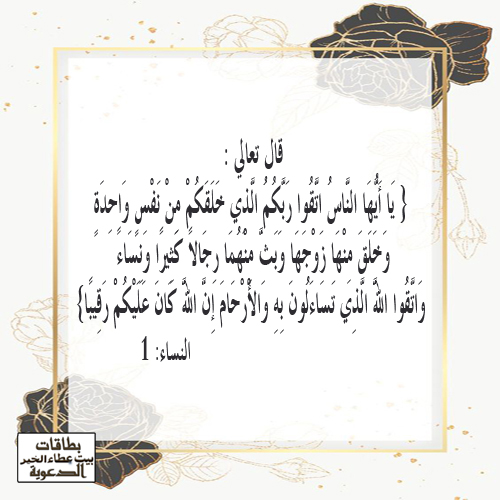 قال تعالي :
{ يَا أَيُّهَا النَّاسُ اتَّقُوا رَبَّكُمُ الَّذِي خَلَقَكُمْ مِنْ نَفْسٍ وَاحِدَةٍ
وَخَلَقَ مِنْهَا زَوْجَهَا وَبَثَّ مِنْهُمَا رِجَالًا كَثِيرًا وَنِسَاءً
وَاتَّقُوا اللَّهَ الَّذِي تَسَاءَلُونَ بِهِ وَالْأَرْحَامَ إِنَّ اللَّهَ كَانَ عَلَيْكُمْ رَقِيبًا}
النساء: 1
بطاقات
بيت عطاء الخير
الدعوية